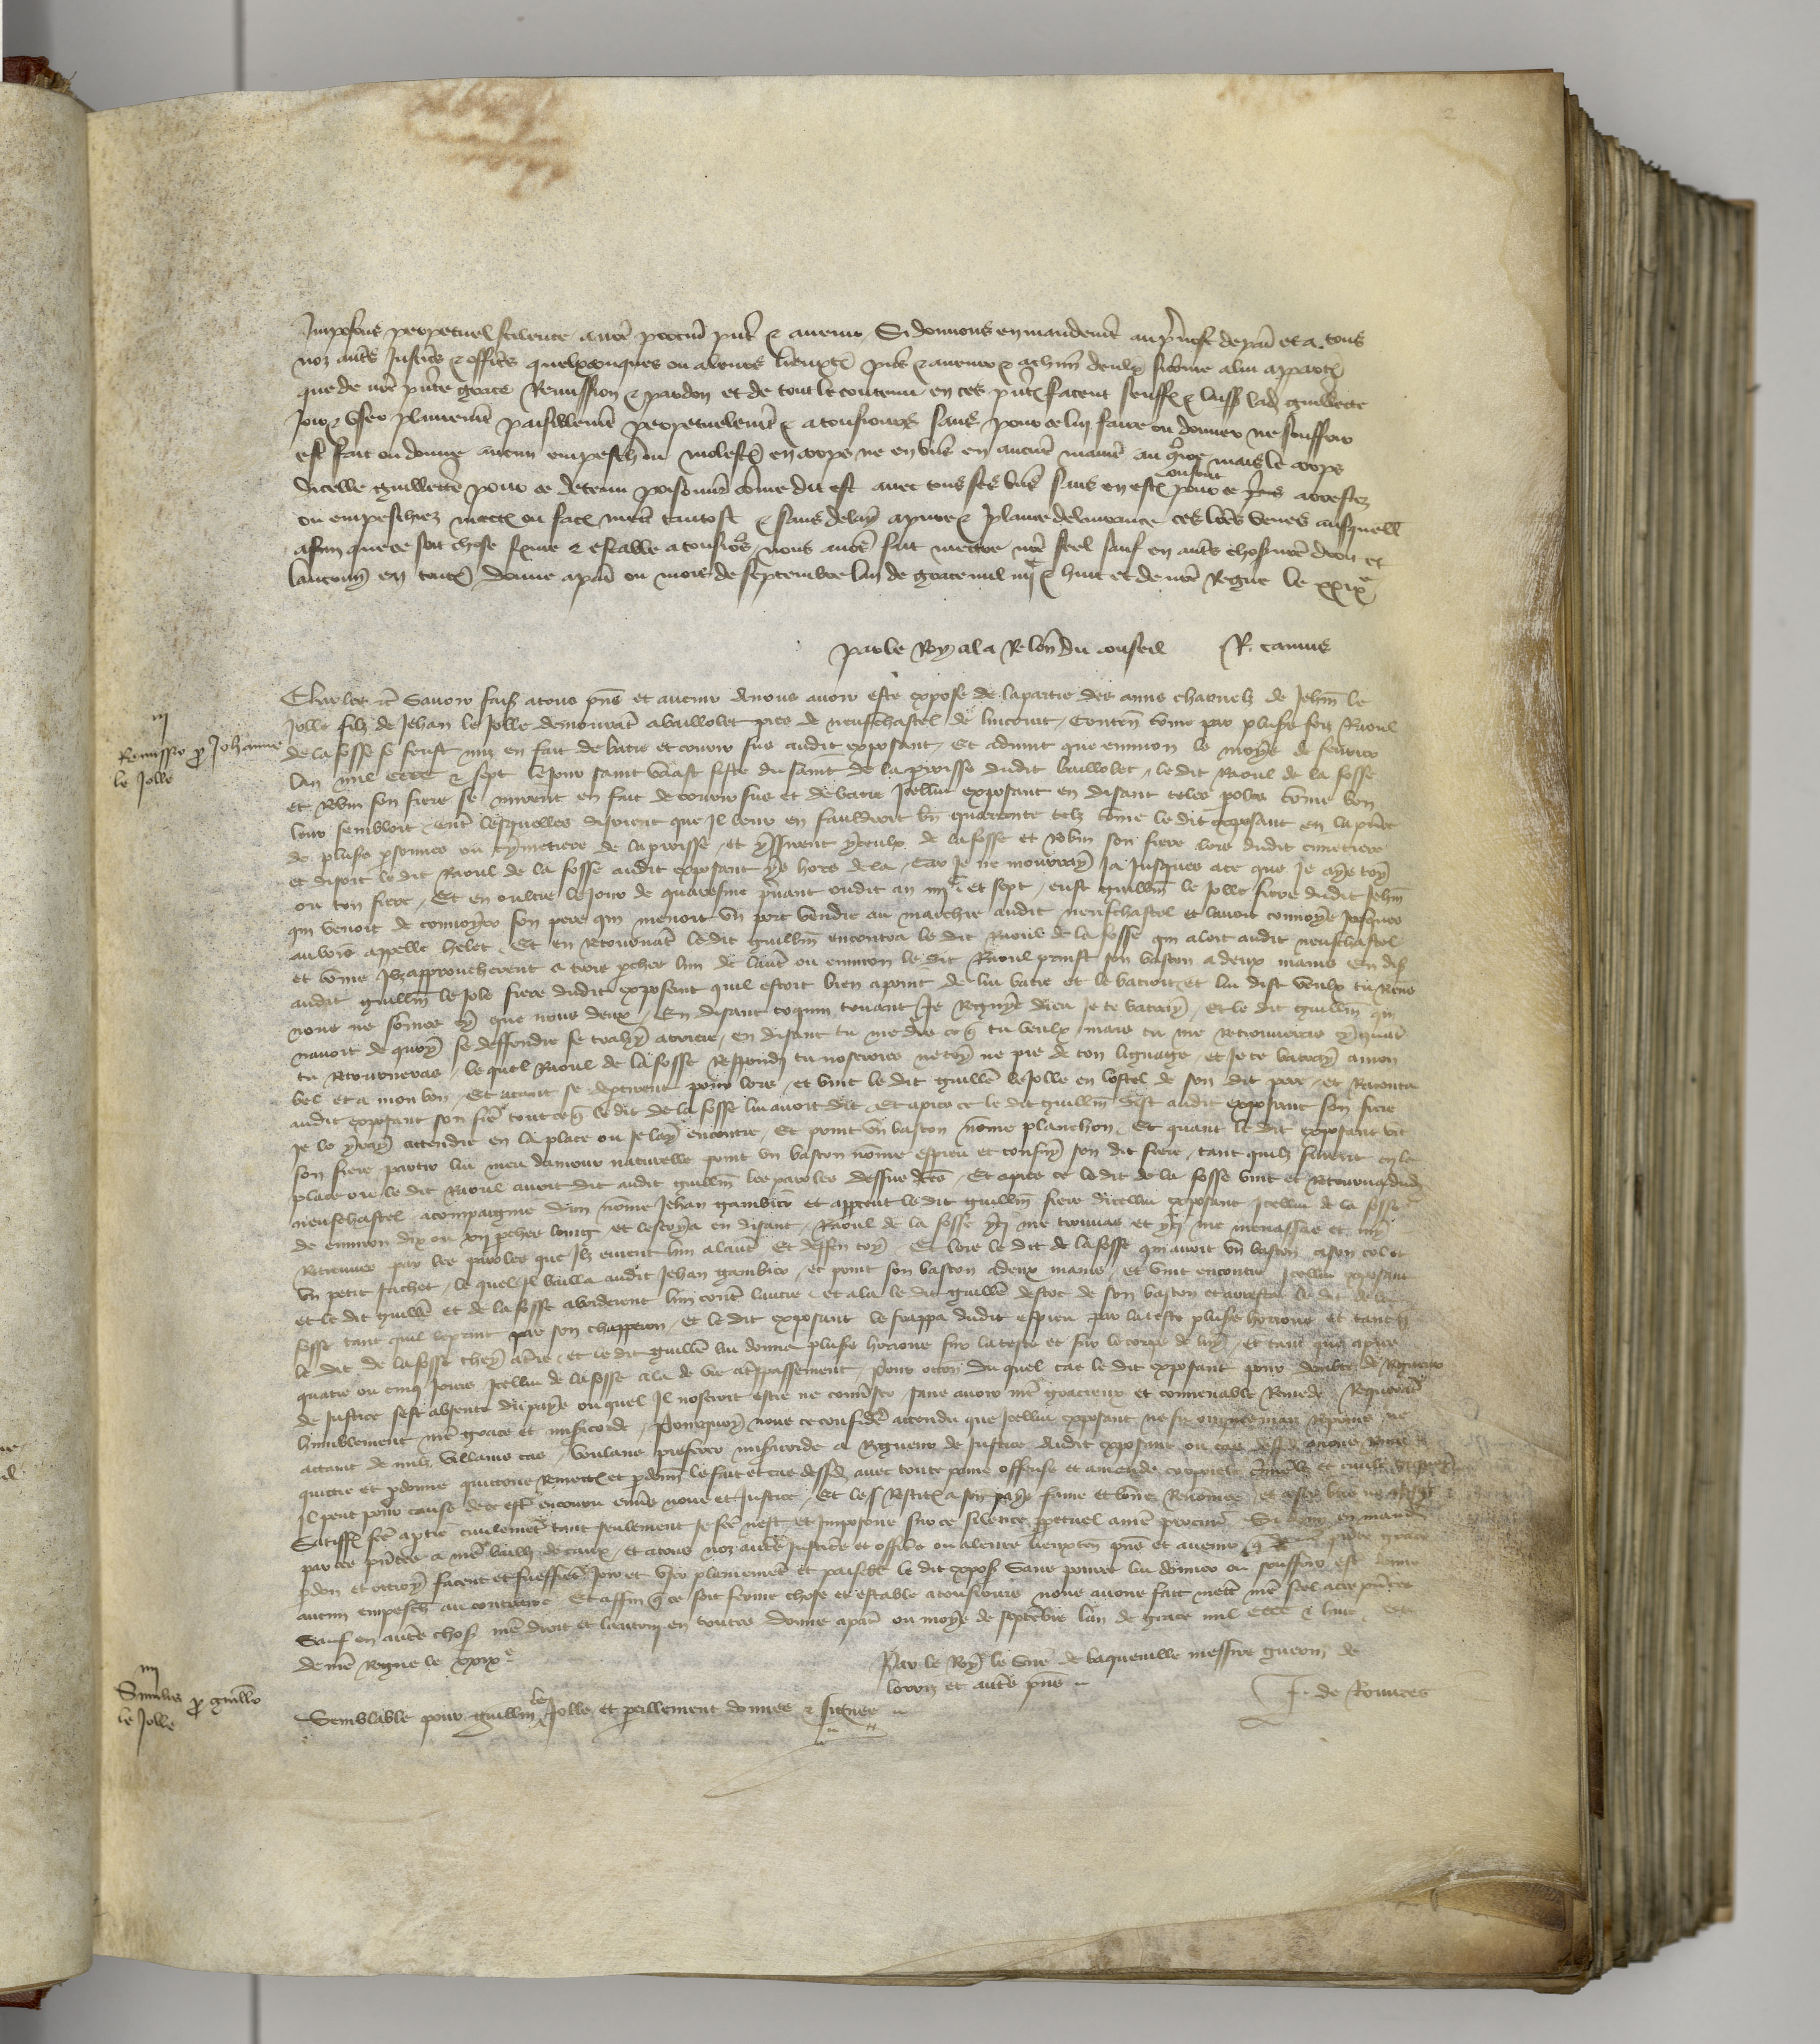 Imposons perpetuel silence a nre procur pnt & avenir Si donnons en mandemt au pvost de par et a tous
noz autres Justic & officrs quelxconques ou a leurs lieuxten pns & avenir & a chun deulx si come a lui apparte
que de nre pnte grace Remission & pardon et de tout le contenu en ces pntes facent seuffr & laiss lad guillette
Joir & user plainemt paisiblemt perpetuelemt & a tousiours sans pour ce luy faire ou donner ne souffrir
est fait ou donne aucun empeschmt ou moleste en corps ne en biens en aucune manie au contre mais le corps
dicelle guillette pour ce detenu prisonnie come dit est avec tous ses biens sans en estre pour ce arrestez
ou empeschiez mette ou face mett tantost & sans delay a pure & plaine delivrance ces lres veues ausquell
afin que ce soit chose ferme & estable a tousiors nous avons fait mettre nre seel sauf en autres choses nre droit et
lautruy en toutes Donne a par ou mois de septembre lan de grace mil iiijc & huit et de nre Regne le xxixe
par le Roy a la Relon du conseil R. camus
iij
Remissio p Johanne
le Jolle
Charles &c Savoir faiss a tous pns et avenir a nous avoir este expose de la partie des amis charnelz de Jehan le
Jolle filz de Jehan le Jolle demourat a baillolet pres de neufchastel de lincourt Conten come par plusrs fois Raoul
de la fosse se feust mis en fait de batre et courir sus audit exposant Et advint que environ le moys de fevrier
lan mil cccc & sept le jour saint vaast feste du saint de la proisse dudit baillolet le dit Raoul de la fosse
et Robin son frere se mirent en fait de courir sus et de batre Icellui exposant en disant teles paroles come bon
leur sembloit entre lesquelles disoient que Il leur en fauldroit bn quarante telz come le dit exposant en la pnce
de plusrs psonnes ou cymetiere de la proisse et yssirent yceulx de la fosse et Robin son frere lors dudit cimetiere
et disoit le dit Raoul de la fosse audit exposant ys hors de la Car Je ne mourray Ja Jusques a ce que Je aye toy
ou ton frere Et en oultre le jour de quaresme prenant oudit an iiijc et sept eust guillm le Jolle frere dudit Jehan
qui venoit de convoyer son pere qui menoit un porc vendre au marchie audit neufchastel et lavoit convoye Jusques
au bois appelle helet Et en Retournat le dit guillm encontra le dit Raoul de la fosse qui aloit audit neufchastel
et come Ilz approucherent a trois pches lun de laut ou environ le dit Raoul print son baston a deux mains En dis
audit guillm le Jole frere dudit exposant quil estoit bien apoint de lui batre et le batroit et lui dist veulx tu Riens
nous ne somes cy que nous deux En disant coquin truant Je Regnye dieu Je te batray Et le dit guillm qui
navoit de quoy se deffendre se trahy arriere en disant tu me dis ce q tu veulx mais tu me Retrouveras cy quat
tu Retourneras le quel Raoul de la fosse Respondi tu noseroies ne toy ne pie de ton lignaige et Je te batray a mon
bel et a mon bon Et atant se departirent pour lors et vint le dit guille le Jolle en lostel de son dit pere et Raconta
audit exposant son fre tout ce q le dit de la fosse lui avoit dit Et apres ce le dit guillm dist audit exposant son frere
Je lo yray attendre en la place ou Je lay encontre Et print un baston nome planchon Et quant le dit exposant vit
son frere partir lui meu damour naturelle print un baston nome espieu et consuy son dit frere tant quilz furent en la
place ou le dit Raoul avoit dit audit guillm les paroles dessus dces Et apres ce le dit de la fosse vint et Retourna dud
neufchastel acompaigne dun nome Jehan gambier et appcut le dit guillm frere dicellui exposant Icellui de la fosse
de environ dix ou xij pches loing et lescrya en disant Raoul de la fosse ycy me trouvas et ycy me menassas et my
Retreuves par les paroles que Ilz eurent lun a laut Et deffen toy Et lors le dit de la fosse qui avoit un baston a son col et
un petit sachet le quel Il bailla audit Jehan gambier et print son baston a deux mains et vint encontre Icellui exposant
et le dit guille et de la fosse aborderent lun contre lautre et ala le dit guille destoc de son baston et arresta le dit de la
fosse tant quil le print par son chapperon et le dit exposant le frappa dudit espieu par la teste plusrs horions et tant q
le dit de la fosse chey a tre et le dit guille lui donna plusrs horions sur la teste et sur le corps de luy et tant que apres
quatre ou cinq Jours Icellui de la fosse ala de vie a trespassement Pour occon du quel cas le dit exposant pour doubte de Rigueur
de Justice sest absente du pays ou quel Il noseroit estre ne convser sans avoir nre gracieux et convenable Remede Requerat
humblement nre grace et misicorde Pourquoy nous ce considere attendu que Icellui exposant ne fu oncques mais Reprins ne
attaint de nulz villains cas Voulans preferer misicorde a Rigueur de Justice Audit exposant ou cas dess avons Remis
quictie et pdonne quictons Remett et pdonn le fait et cas dessusd avec toute peine offense et amende corporele criminele et civile
Il peut pour cause de ce estre encouru envs nous et Justice Et les Restitu a son pays fame et bonne Renomee et a ses biens
Satiffco fce a ptie civilemet tant seulement se fce nest Et Imposons sur ce silence ppetuel a nre procur Si donn en mand
par ces pntes a nre bailli de caux et a tous noz autres Justiciers et officiers ou a leurs lieuxten pns et avenir q de nre pnte grace
pdon et ottroy facent et sueffrent Joir et user plainemet et paisiblt le dit expos Sans pour ce lui donner ou souffrir est donne
aucun empesch au contraire Et affin q ce soit ferme chose et estable a tousiours nous avons fait mett nre seel a ces pntes
Sauf en autres chos nre droit et lautruy en toutes Donne a par ou moys de septebre lan de grace mil cccc & huit Et
de nre Regne le xxixe
Par le Roy le sire de baqueville messire guerin de
lorriz et autres pns
iiij
Similis p guillo
le Jolle
Semblable pour guillm le Jolle et pareillement donnee & signee